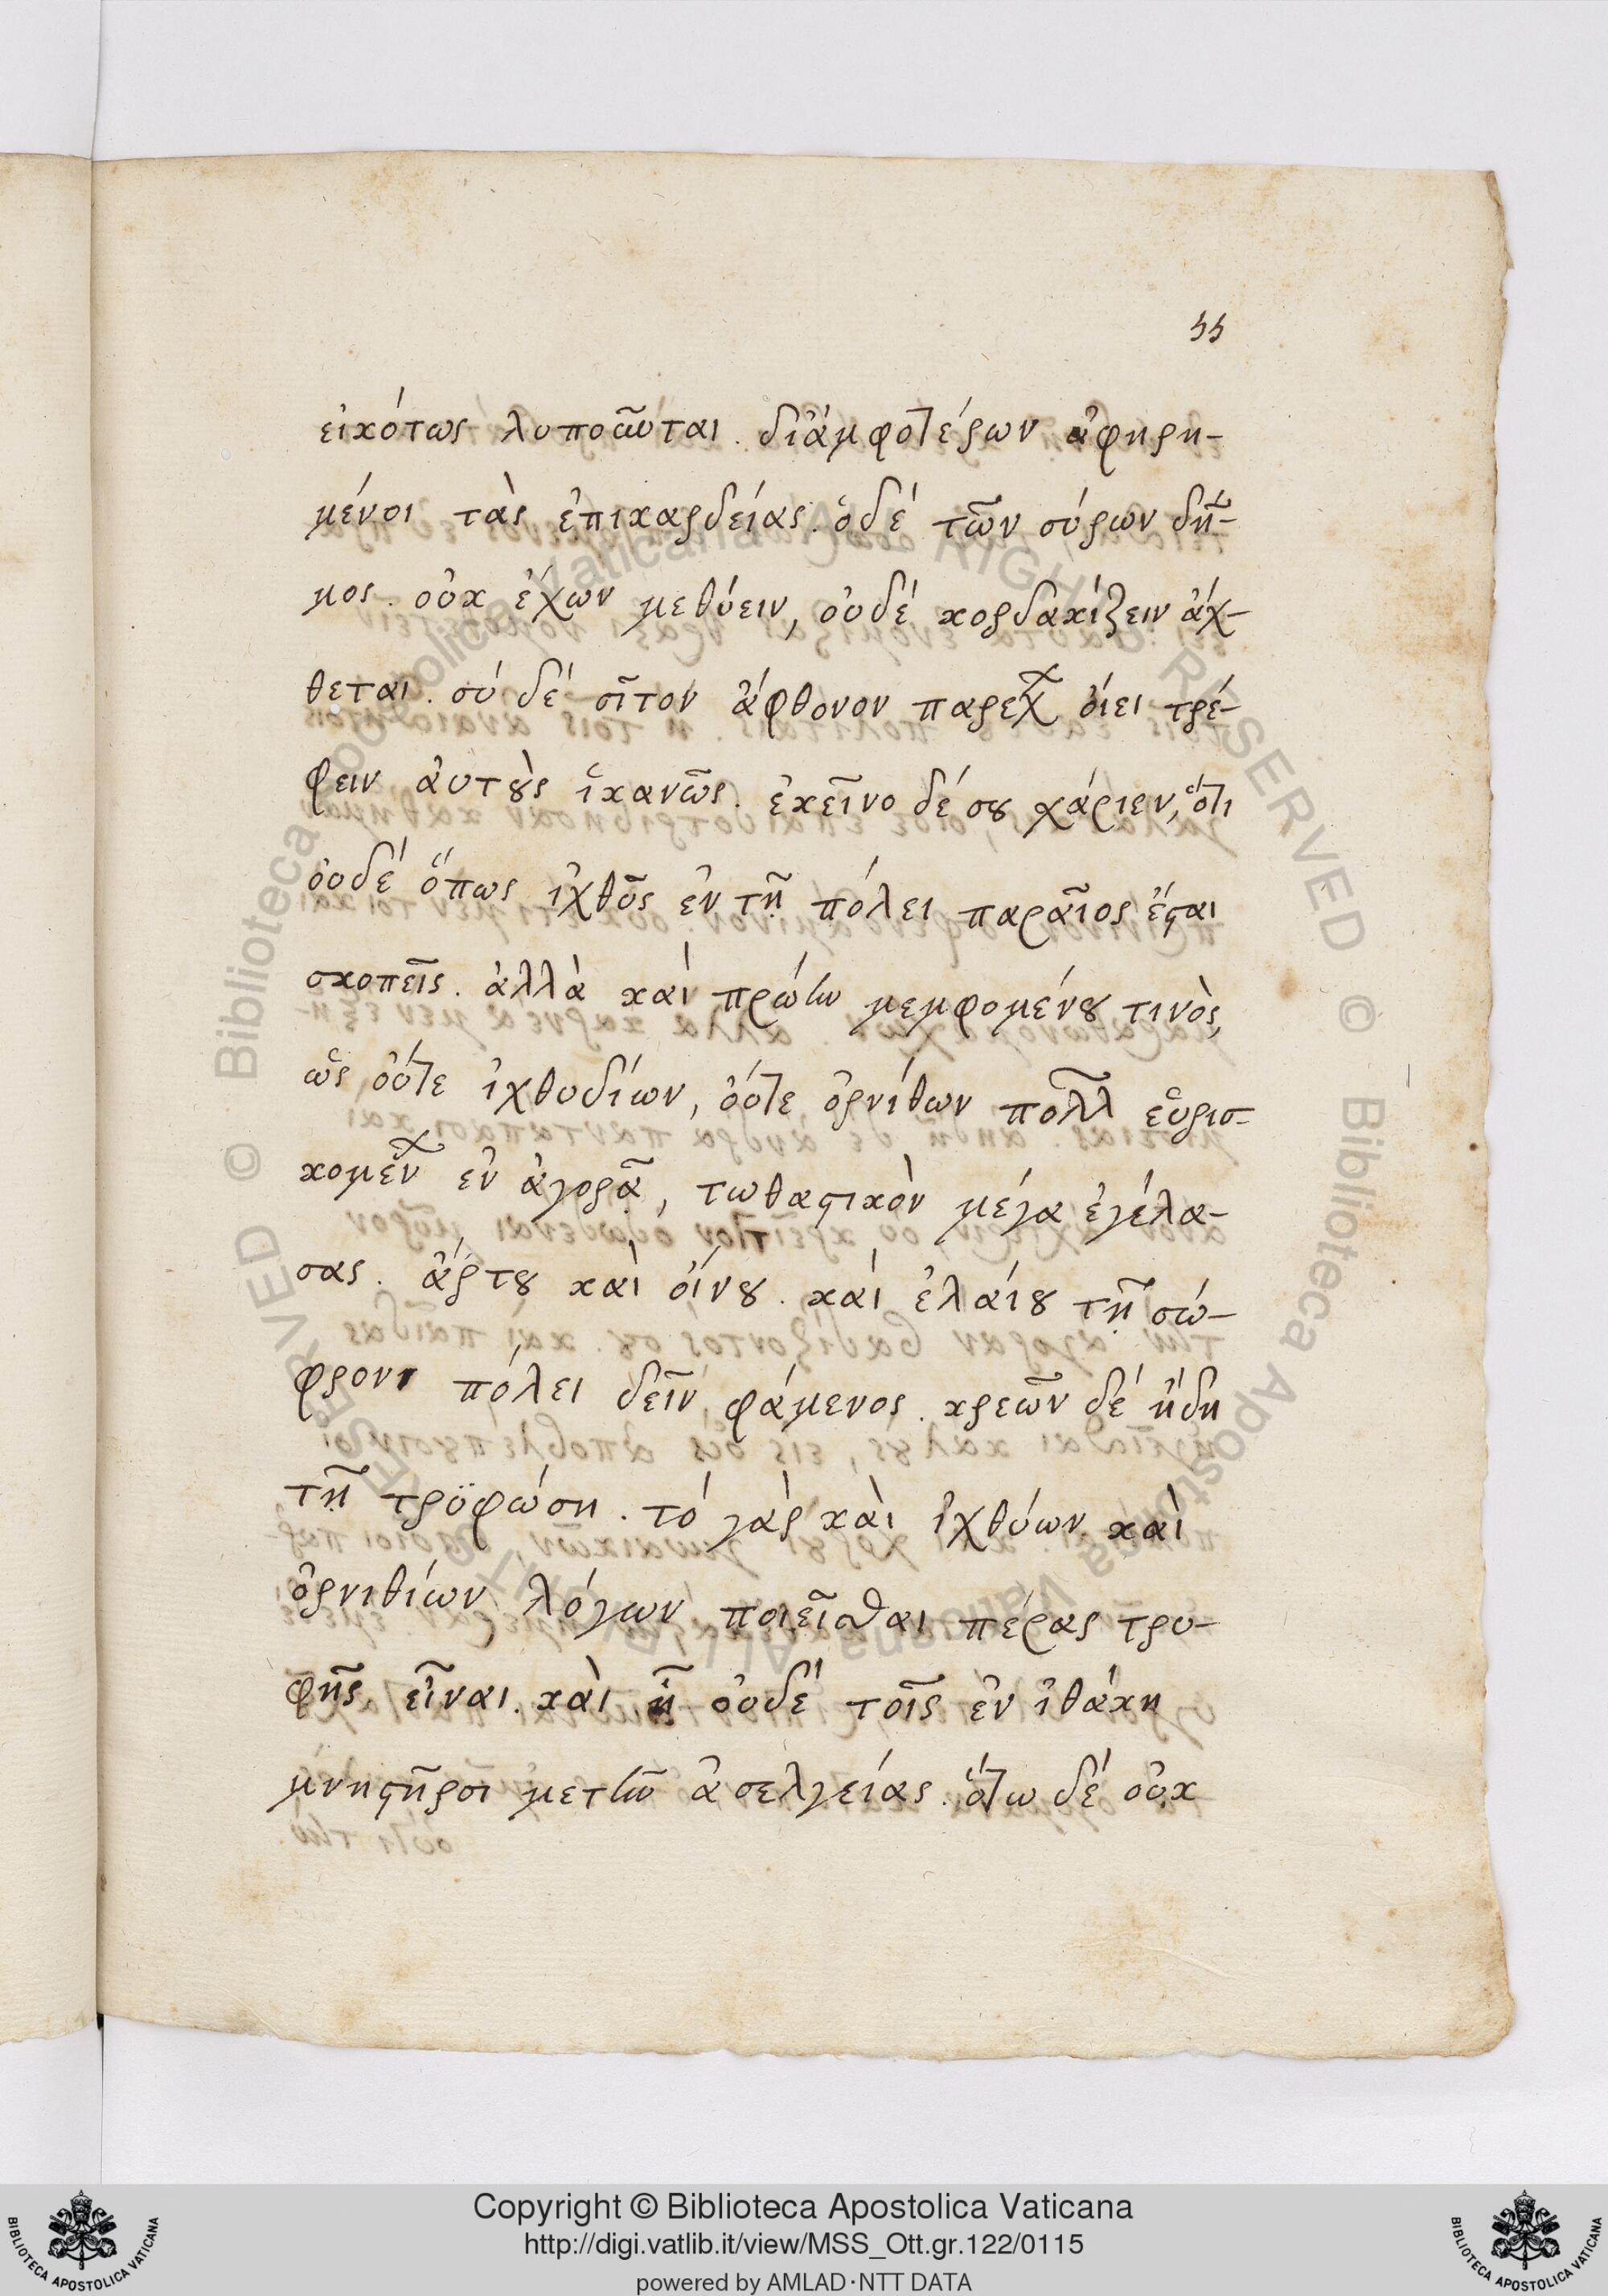 55
εἰκότως λυποῦνται. δι᾽ ἀμφοτέρων ἀφηρη-
μένοι τὰς ἐπικαρδείας. ὁδέ τῶν σύρων δῆ-
μος. οὐκ ἔχων μεθύειν, οὐδέ κορδακίζειν ἄχ-
θεται. σύ δέ σῖτον ἄφθονον παρεχ οἴει τρέ-
φειν ἀυτοὺς ἱκανῶς. ἐκεῖνο δέ σου χάριεν, ὅτι
ὀυδέ ὅπως ἰχθῦς ἐν τῇ πόλει παραῖος ἔσται
σκοπεῖς. ἀλλὰ καὶ πρώην μεμφομένου τινὸς,
ὡς ὀύτε ἰχθυδίων, ὀύτε ὀρνίθων πολλ εὑρισ-
κομεν ἐν ἀγορᾷ, τωθαστικὸν μέγα ἐγέλα-
σας. ἄρτου καὶ ὄινου. καὶ ἐλάιου τῇ σώ-
φρονι πόλει δεῖν φάμενος. κρεῶν δέ ἤδη
τῇ τρϋφώσῃ. τό γὰρ καὶ ἰχθύων καὶ
ὀρνιθίων λόγων ποιεῖσθαι πέρας τρυ-
φῆς εἶναι. καὶ ἧ οὐδέ τοῖς ἐν ἰθάκη
μνηστῆρσι μετῆν ἀσελγείας. ὅτω δέ οὐκ
© Biblioteca Apostolica Vaticana ALL RIGHTS RESERVED
Copyright © Biblioteca Apostolica Vaticana
http://digi.vatlib.it/view/MSS_Ott.gr.122/0115
powered by AMLAD·NTT DATA
BIBLIOTECA APOSTOLICA VATICANA
BIBLIOTECA APOSTOLICA VATICANA